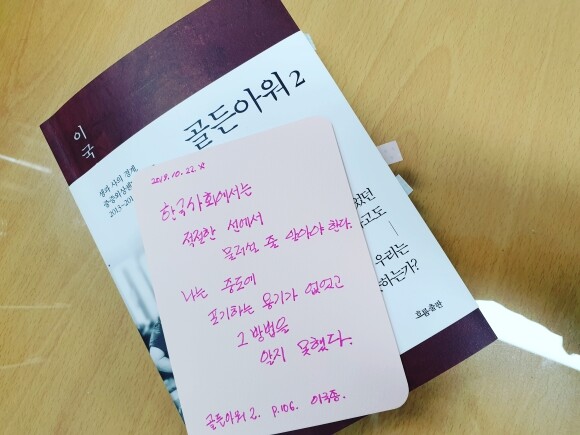 이국
골든아워 2
생과 사의 경계,
중증외상센
2013~201
었던
고도
우리는
하는가?
흐름출판
2018. 10. 22. 月
한국사회에서는
적절한 선에서
물러설 줄 알아야 한다.
나는 중도에
포기하는 용기가 없었고
그 방법을
알지 못했다.
골든아워 2. P.106. 이국종.